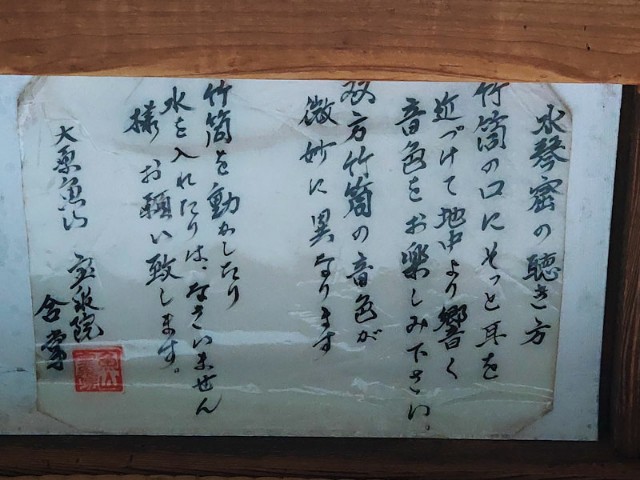 水琴窟の聴き方
竹筒の口にそっと耳を
近づけて地中より響く
音色をお楽しみ下さい。
双方竹筒の音色が
微妙に異なります
竹筒を動かしたり
水を入れたりは、なさいません
様お願い致します。
大原魚山 宝泉院